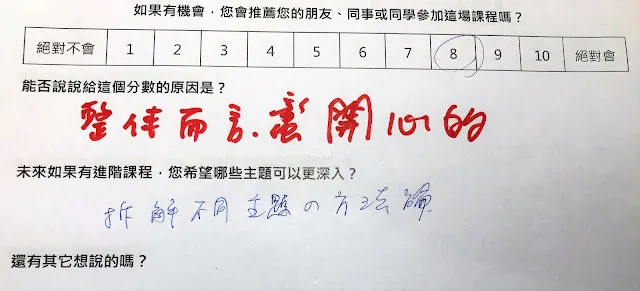 如果有機會，您會推薦您的朋友、同事或同學參加這場課程嗎？
絕對不會 1 2 3 4 5 6 7 8 9 10 絕對會
能否說說給這個分數的原因是？
整体而言.蠻開心的
未來如果有進階課程，您希望哪些主題可以更深入？
拆解不同主題の方法論
還有其它想說的嗎？